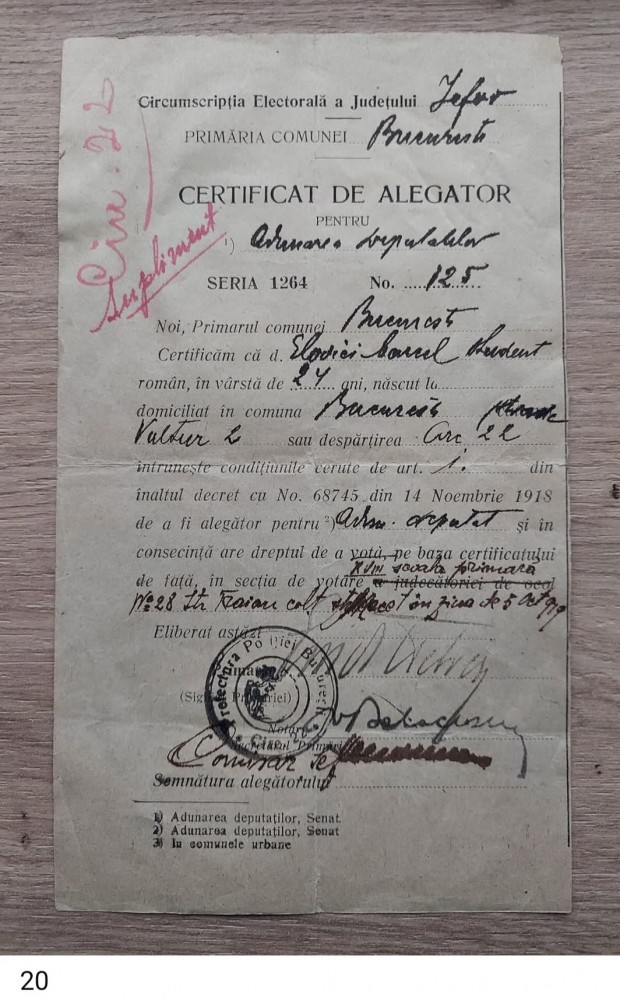 Circumscripția Electorală a Județului Ilfov
PRIMĂRIA COMUNEI București
Circ. 22
supliment
CERTIFICAT DE ALEGATOR
PENTRU
1) Adunarea deputatilor
SERIA 1264 No. 125
Noi, Primarul comunei București
Certificăm că d. student
român, în vârstă de ani, născut la
domiciliat în comuna București
Vultur 2 sau despărțirea Circ 22
întrunește condițiunile cerute de art. 1. din
înaltul decret cu No. 68745 din 14 Noembrie 1918
de a fi alegător pentru 2) Adun. deputat și în
consecință are dreptul de a vota, pe baza certificatului
XVIII scoala primară
de față, în secția de votare a judecătoriei de ocol
No 28 str. Traian colț în ziua de 5 Oct
Eliberat astăzi
Prefectura Poliției București
Circ.
Notar
Secretarul Primăriei
Comisar
Semnătura alegătorului
1) Adunarea deputaților, Senat.
2) Adunarea deputaților, Senat
3) In comunele urbane
20